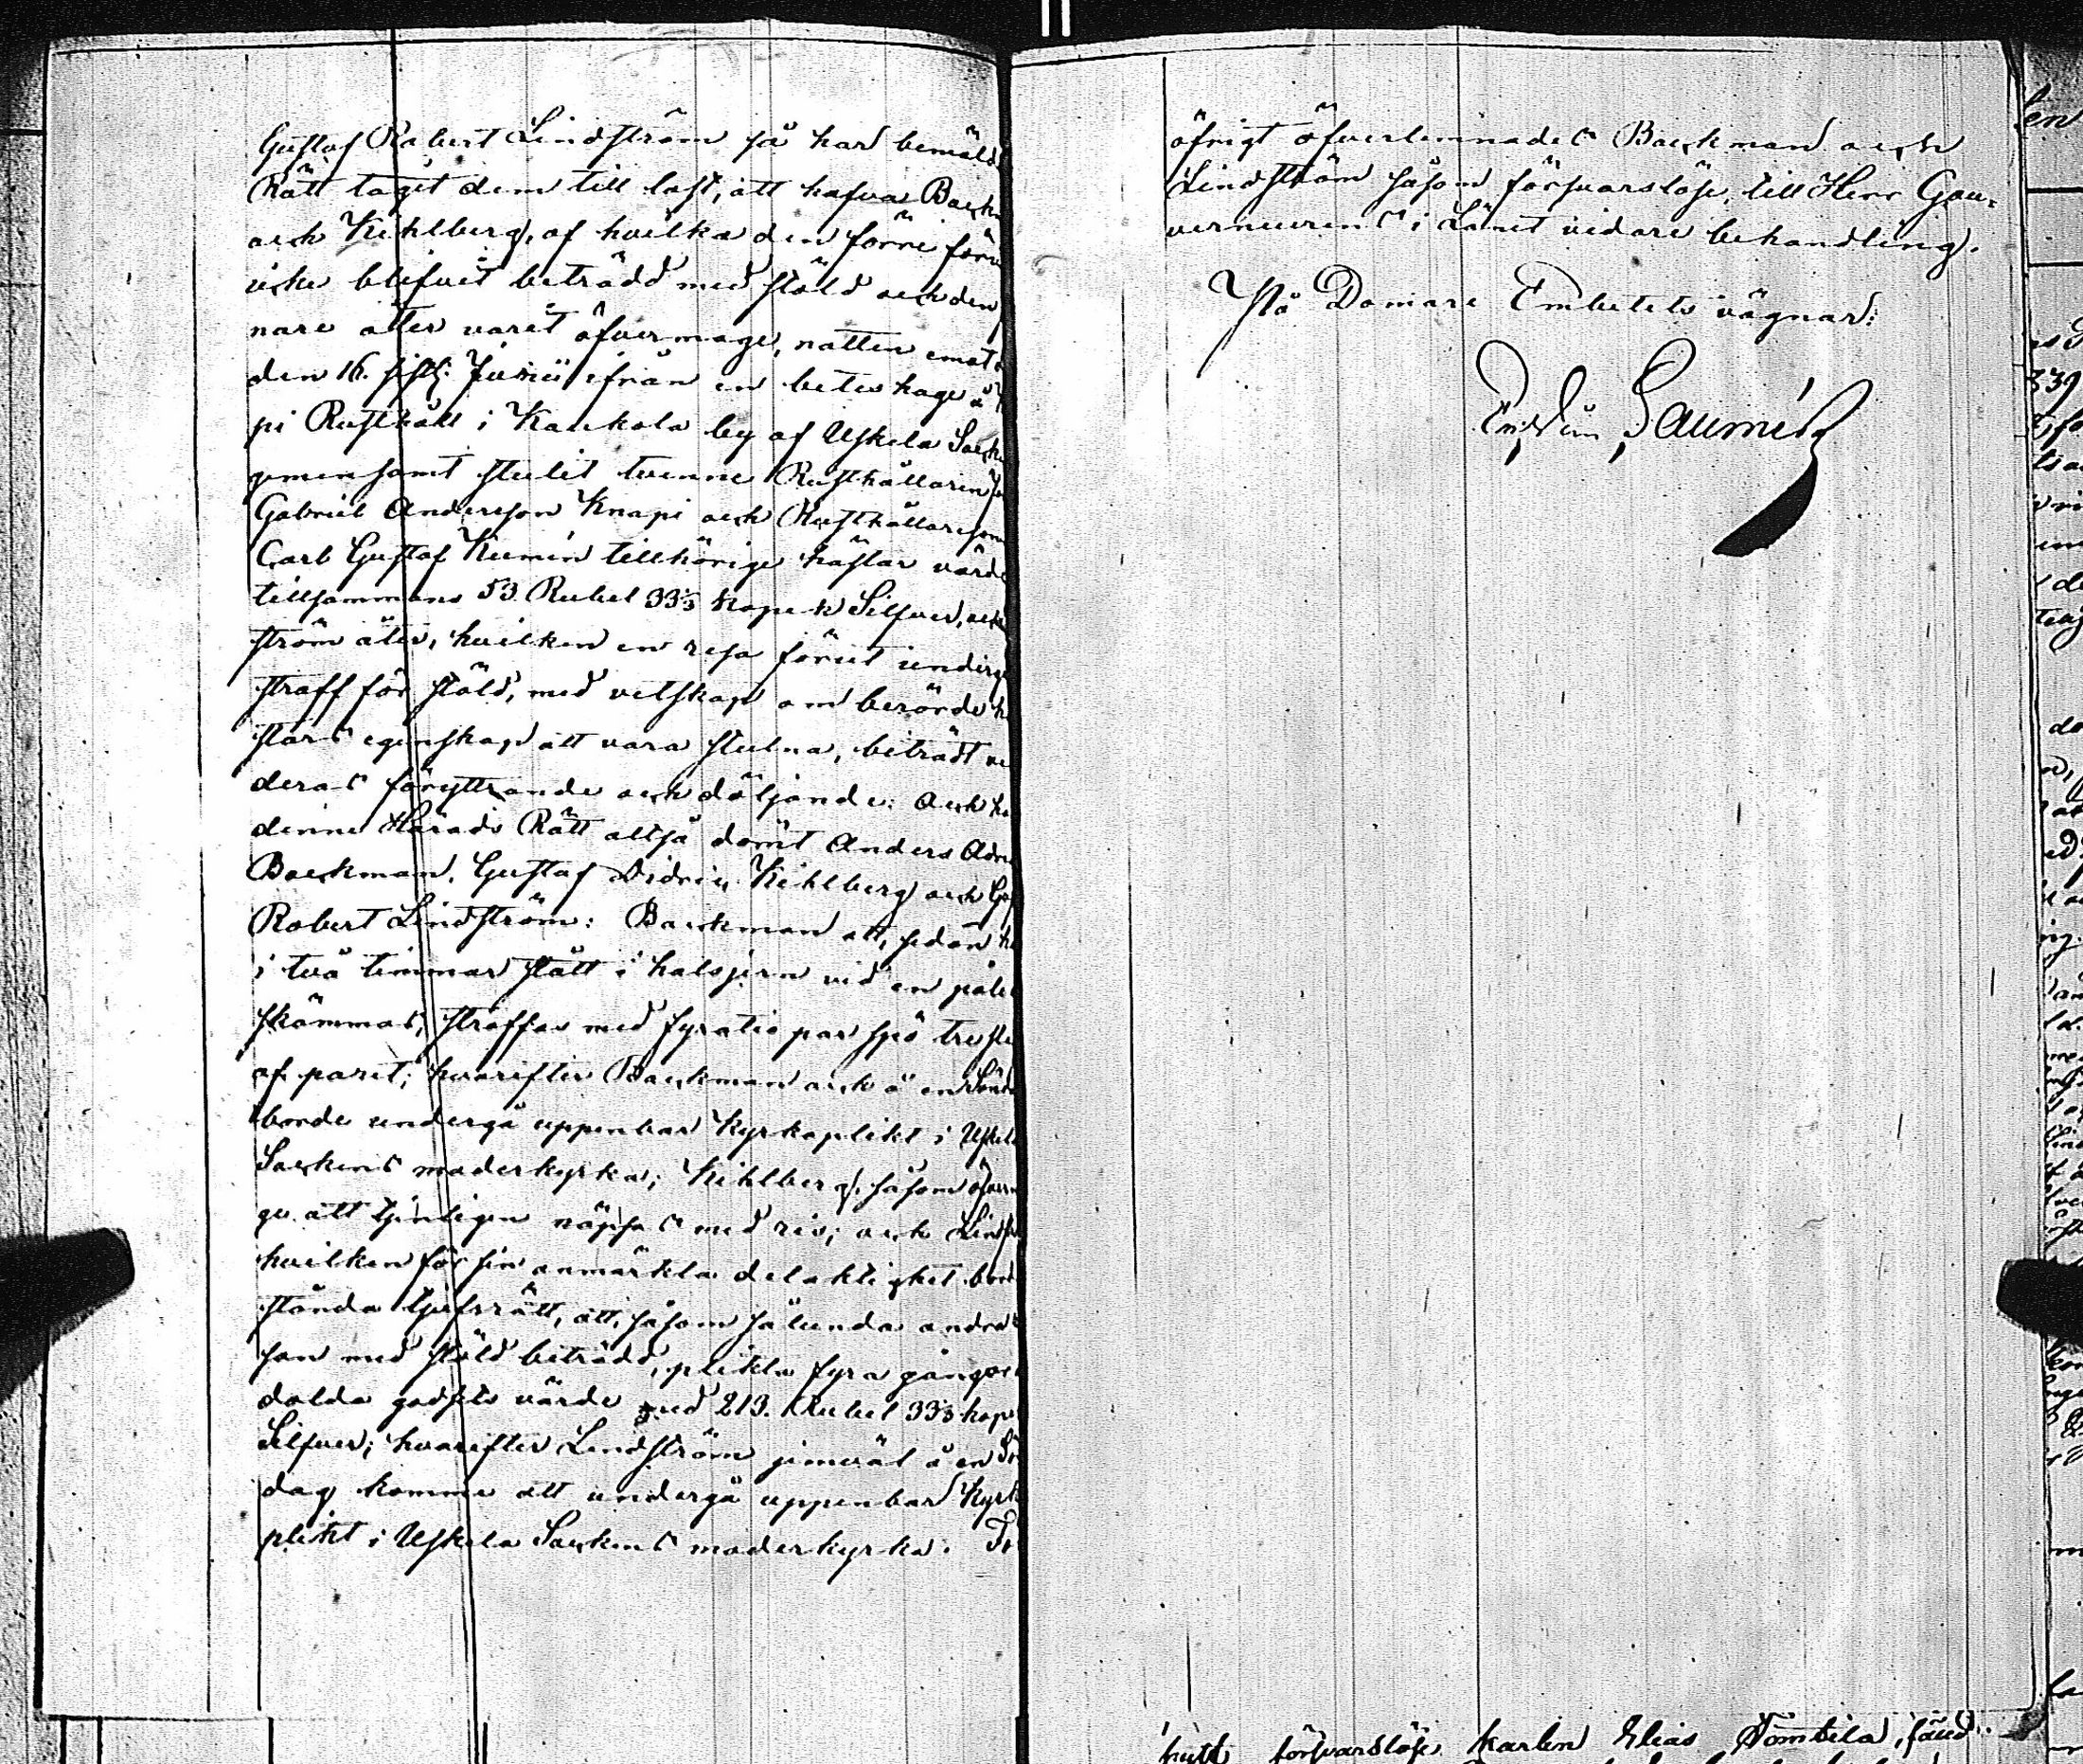 Gustaf Robert Lindström så har bemäld
Rätt tagit dem till last, att hafva Back
och Kihlberg, af hvilka den förre förr
icke blifvit beträdd med stöld och den
nare åter varit öfvermage, natten emot
den 16. sistl. Junii ifrån en betes hage å
pi Rusthåll i Kaukola by af Uskela Sock
gemensamt stulit tvenne Rusthållaren
Gabriel Andersson Knapi och Rusthållareson
Carl Gustaf Kumin tillhörige hästar värde
tillsammans 53 Rubel 33⅓ kopek Silfver, och
ström åter, hvilken en resa förut underg
straff för stöld, med vetskap om berörde h
stars egenskap att vara stulna, biträdt vi
deras föryttrande och döljande: Och ha
denne Härads Rätt altså dömt Anders Adr
Backman, Gustaf Didric Kihlberg och Gus
Robert Lindström: Backman att, sedan h
i två timmar stått i halsjern vid en påle
skämmas, straffas med fyratio par spö tre sla
af paret; hvarefter Backman och å en Sönd
borde undergå uppenbar Kyrkoplikt i Uskela
Sockens moderkyrka; Kihlberg, såsom öfverm
ge att tjenligen näpsas med ris; och Linds
hvilken för sin anmärkta delaktighet bord
stånda tjufsrätt, att, såsom sålunda andra
san med stöld beträdd, plikta fyra gånger
dolda godsets värde med 213. Rubel 33⅓ kop
Silfver; hvarefter Lindström jemväl å en Sö
dag komme att undergå uppenbar Kyrk
plikt i Uskela Sockens moderkyrka. I
öfrigt öfverlemnades Backman och
Lindström såsom försvarslöse, till Herr Gou-
verneurens i Länet vidare behandling.
På Domare Embetets vägnar:
karlen Elias Tömbila, född